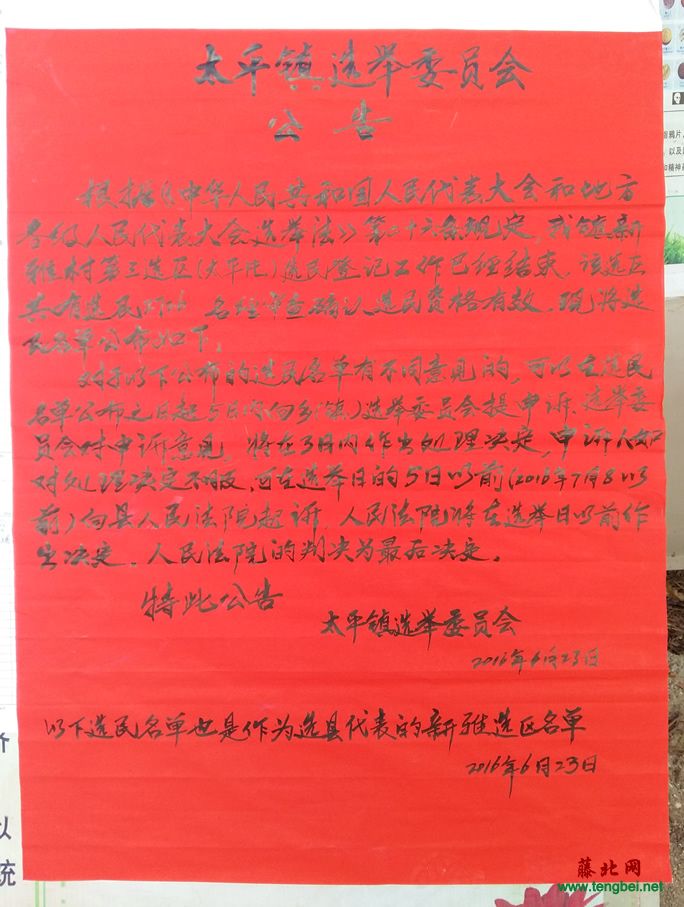 太平镇选举委员会
公告
根据《中华人民共和国人民代表大会和地方
各级人民代表大会选举法》第二十六条规定，我镇新
雅村第三选区(大车社)选民登记工作已经结束，该选区
共有选民 名经审查确认选民资格有效，现将选
民名单公布如下，
对于以下公布的选民名单有不同意见的，可以在选民
名单公布之日起5日内向乡(镇)选举委员会提申诉，选举委
员会对申诉意见，将在3日内作出处理决定，申诉人如
对处理决定不服，可在选举日的5日以前(2016年7月8以
前)向县人民法院起诉，人民法院将在选举日以前作
出决定，人民法院的判决为最后决定。
特此公告
太平镇选举委员会
2016年6月23日
以下选民名单也是作为选县代表的新雅选区名单
2016年6月23日
藤北网
www.tengbei.net
以
统